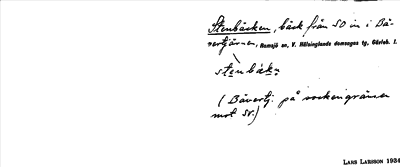 Stenbäcken, bäck från SO in i Bä-
vertjärnen, Ramsjö sn, V. Hälsinglands domsagas tg, Gävleb. l.
stenbäkn
( Bävertj. på sockengränsen
mot SV.)
LARS LARSSON 1934